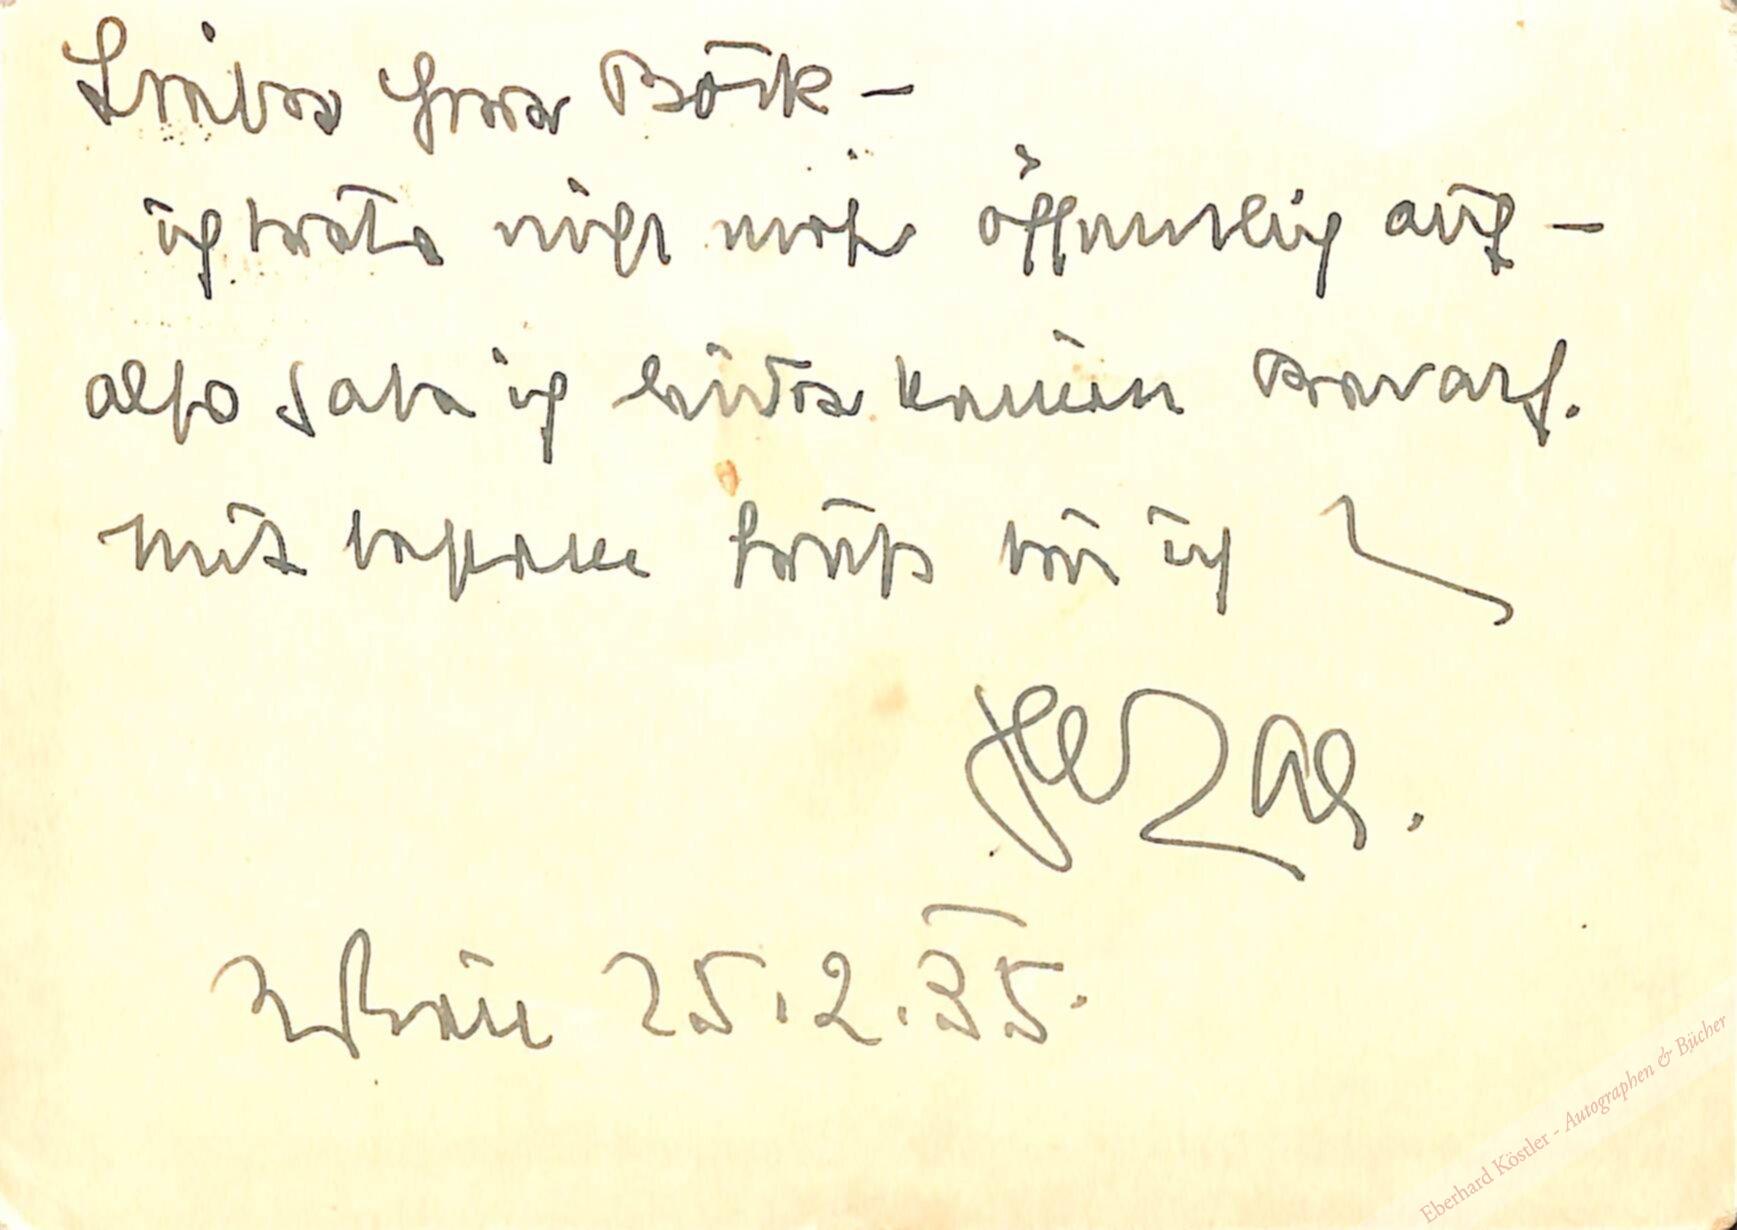 Lieber Herr Böck –
ich trete nicht mehr öffentlich auf –
also habe ich leider keinen Bedarf.
Mit bestem Gruß bin ich
Slezak.
Wien 25.2.35.
Eberhard Köstler - Autographen & Bücher